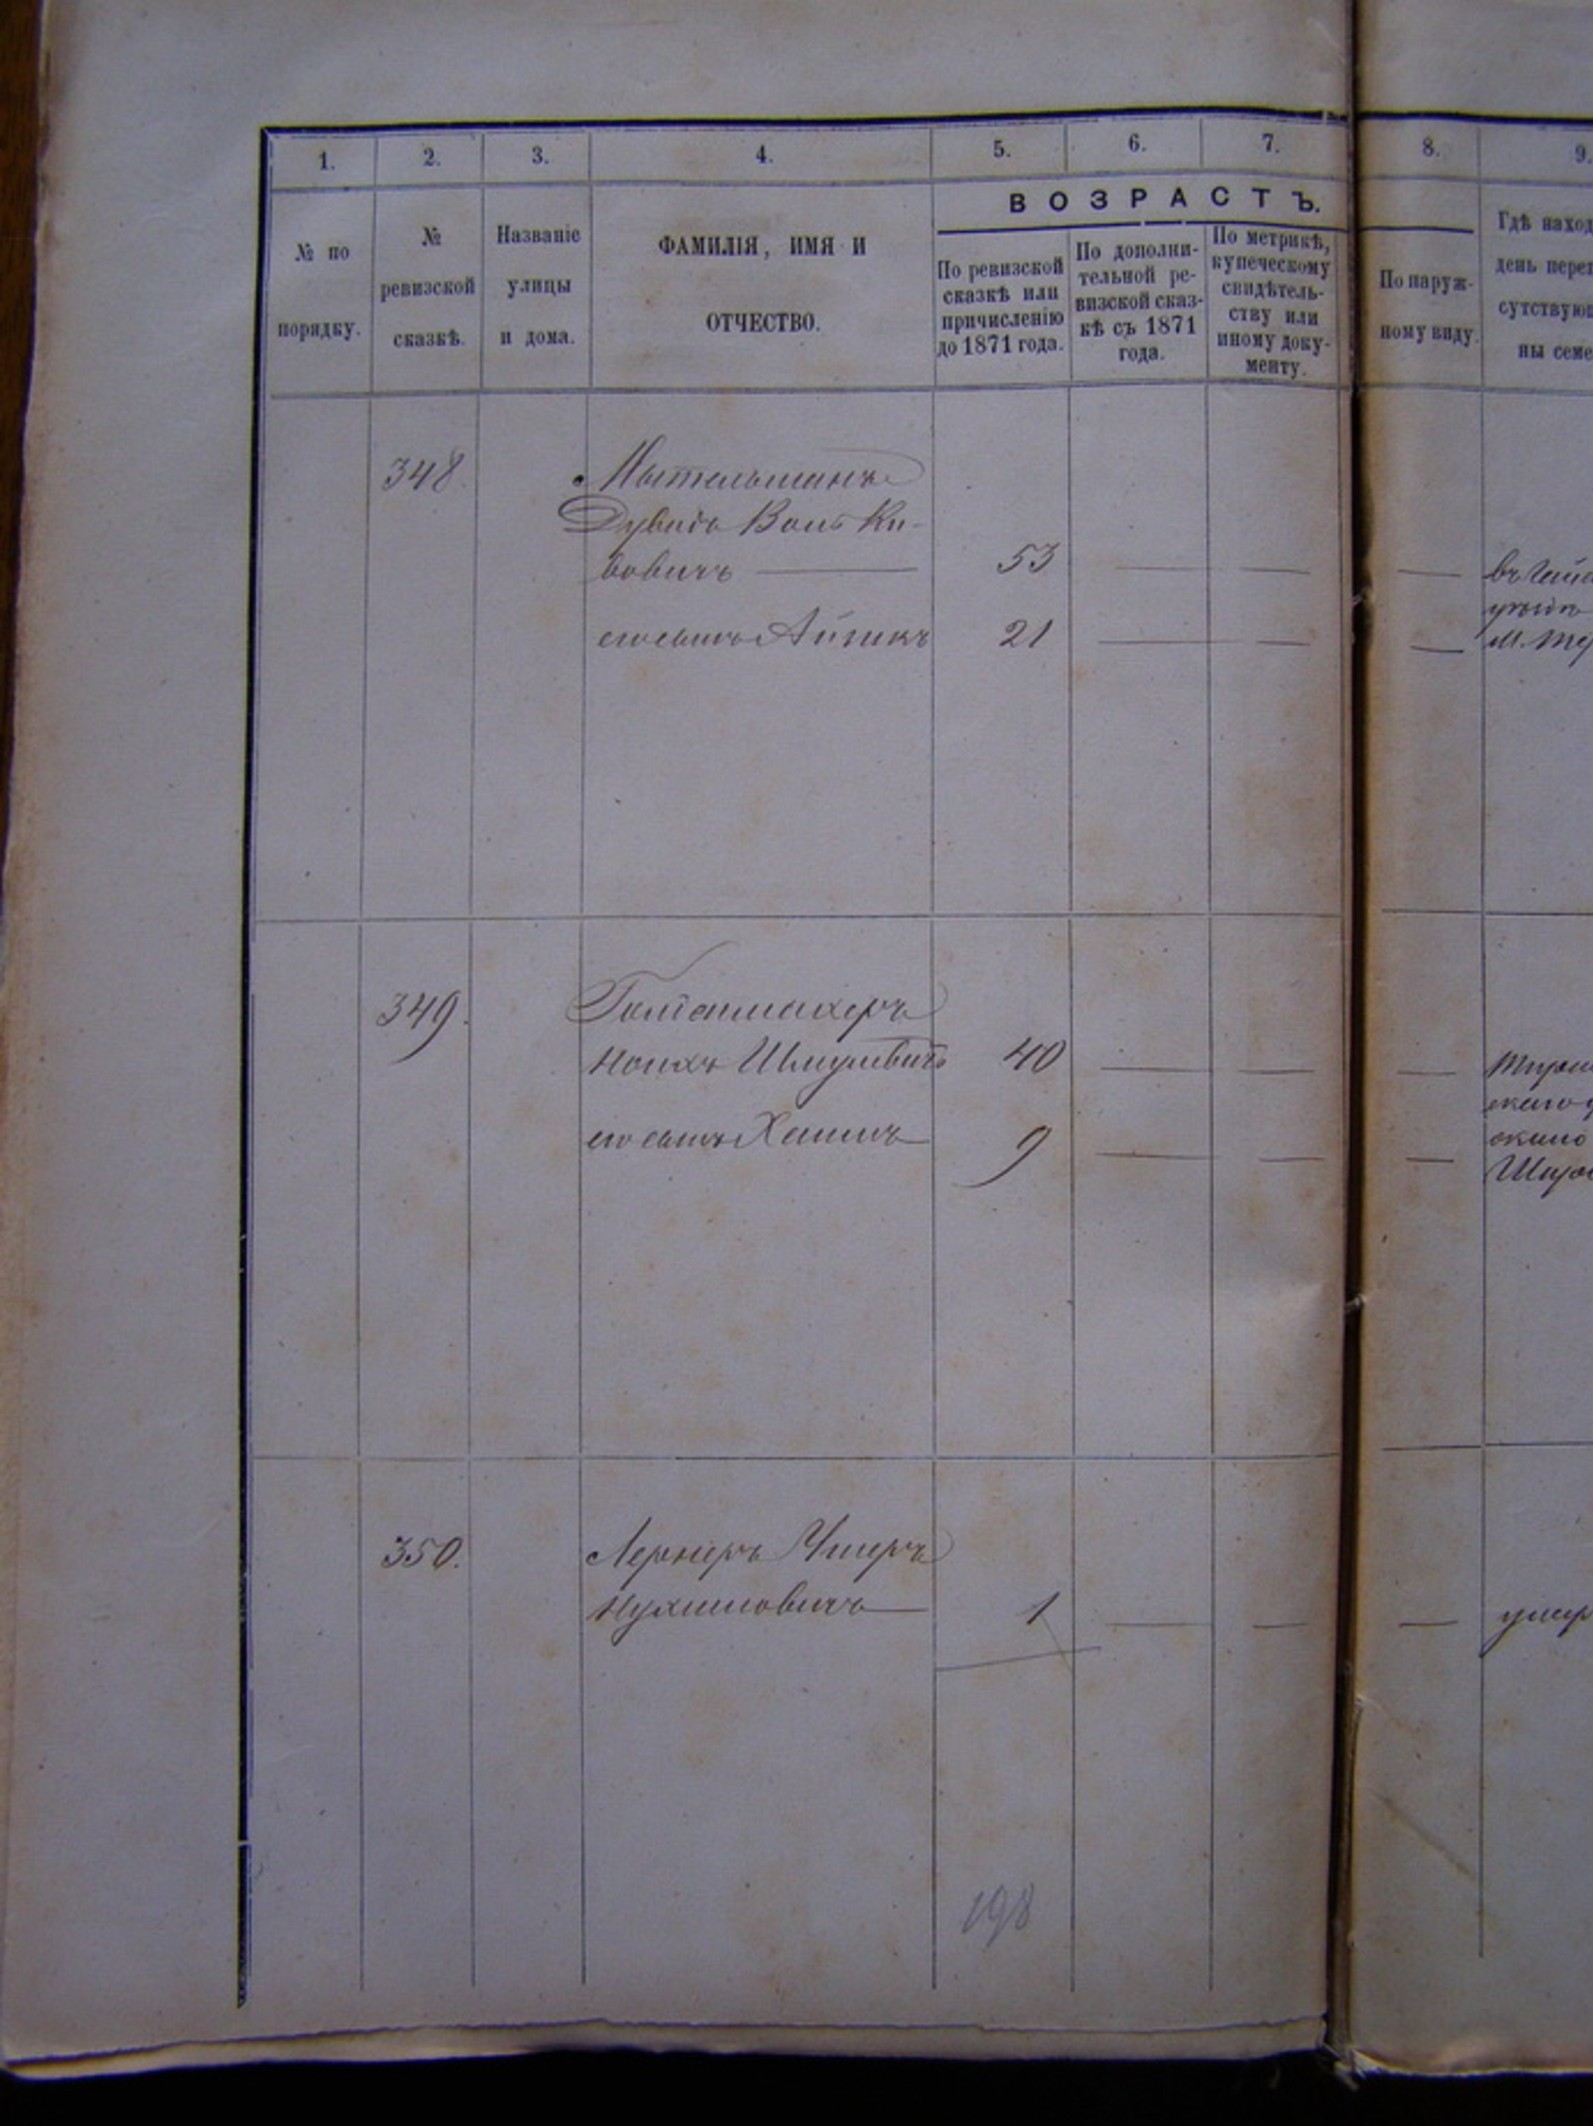 1. 2. 3. 4. 5. 6. 7. 8. 9.
№ по порядку.
№ ревизской сказкѣ.
Названіе улицы и дома.
ФАМИЛІЯ, ИМЯ И ОТЧЕСТВО.
ВОЗРАСТЪ.
По ревизской сказкѣ или причисленію до 1871 года.
По дополни-
тельной ре-
визской сказ-
кѣ съ 1871 года.
По метрикѣ,
купеческому
свидѣтель-
ству или
иному доку-
менту.
По наруж-
ному виду.
Гдѣ наход
день переп
сутствующ
ны семе
348.
Дувидъ Воль Ки-
вовичъ — 53 — — —
его сынъ Айзикъ 21 — — —
349.
Шмулевичъ 40 — — —
его сынъ Хаимъ 9 — — —
350. Лернеръ Ушеръ
Нухимовичъ — 1 — — — умер
198